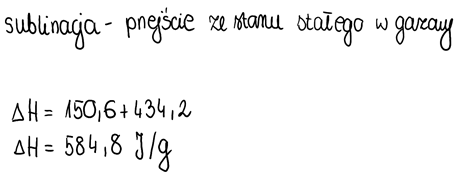 sublimacja - przejście ze stanu stałego w gazowy
ΔH = 150,6 + 434,2
ΔH = 584,8 J/g